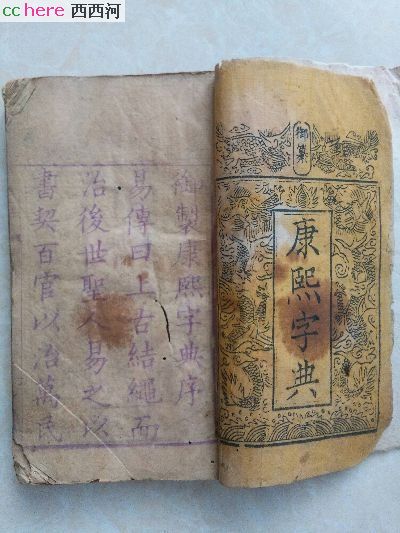 cchere 西西河
御纂
康熙字典
御製康熙字典序
易傳曰上古結繩而
治後世聖人易之以
書契百官以治萬民